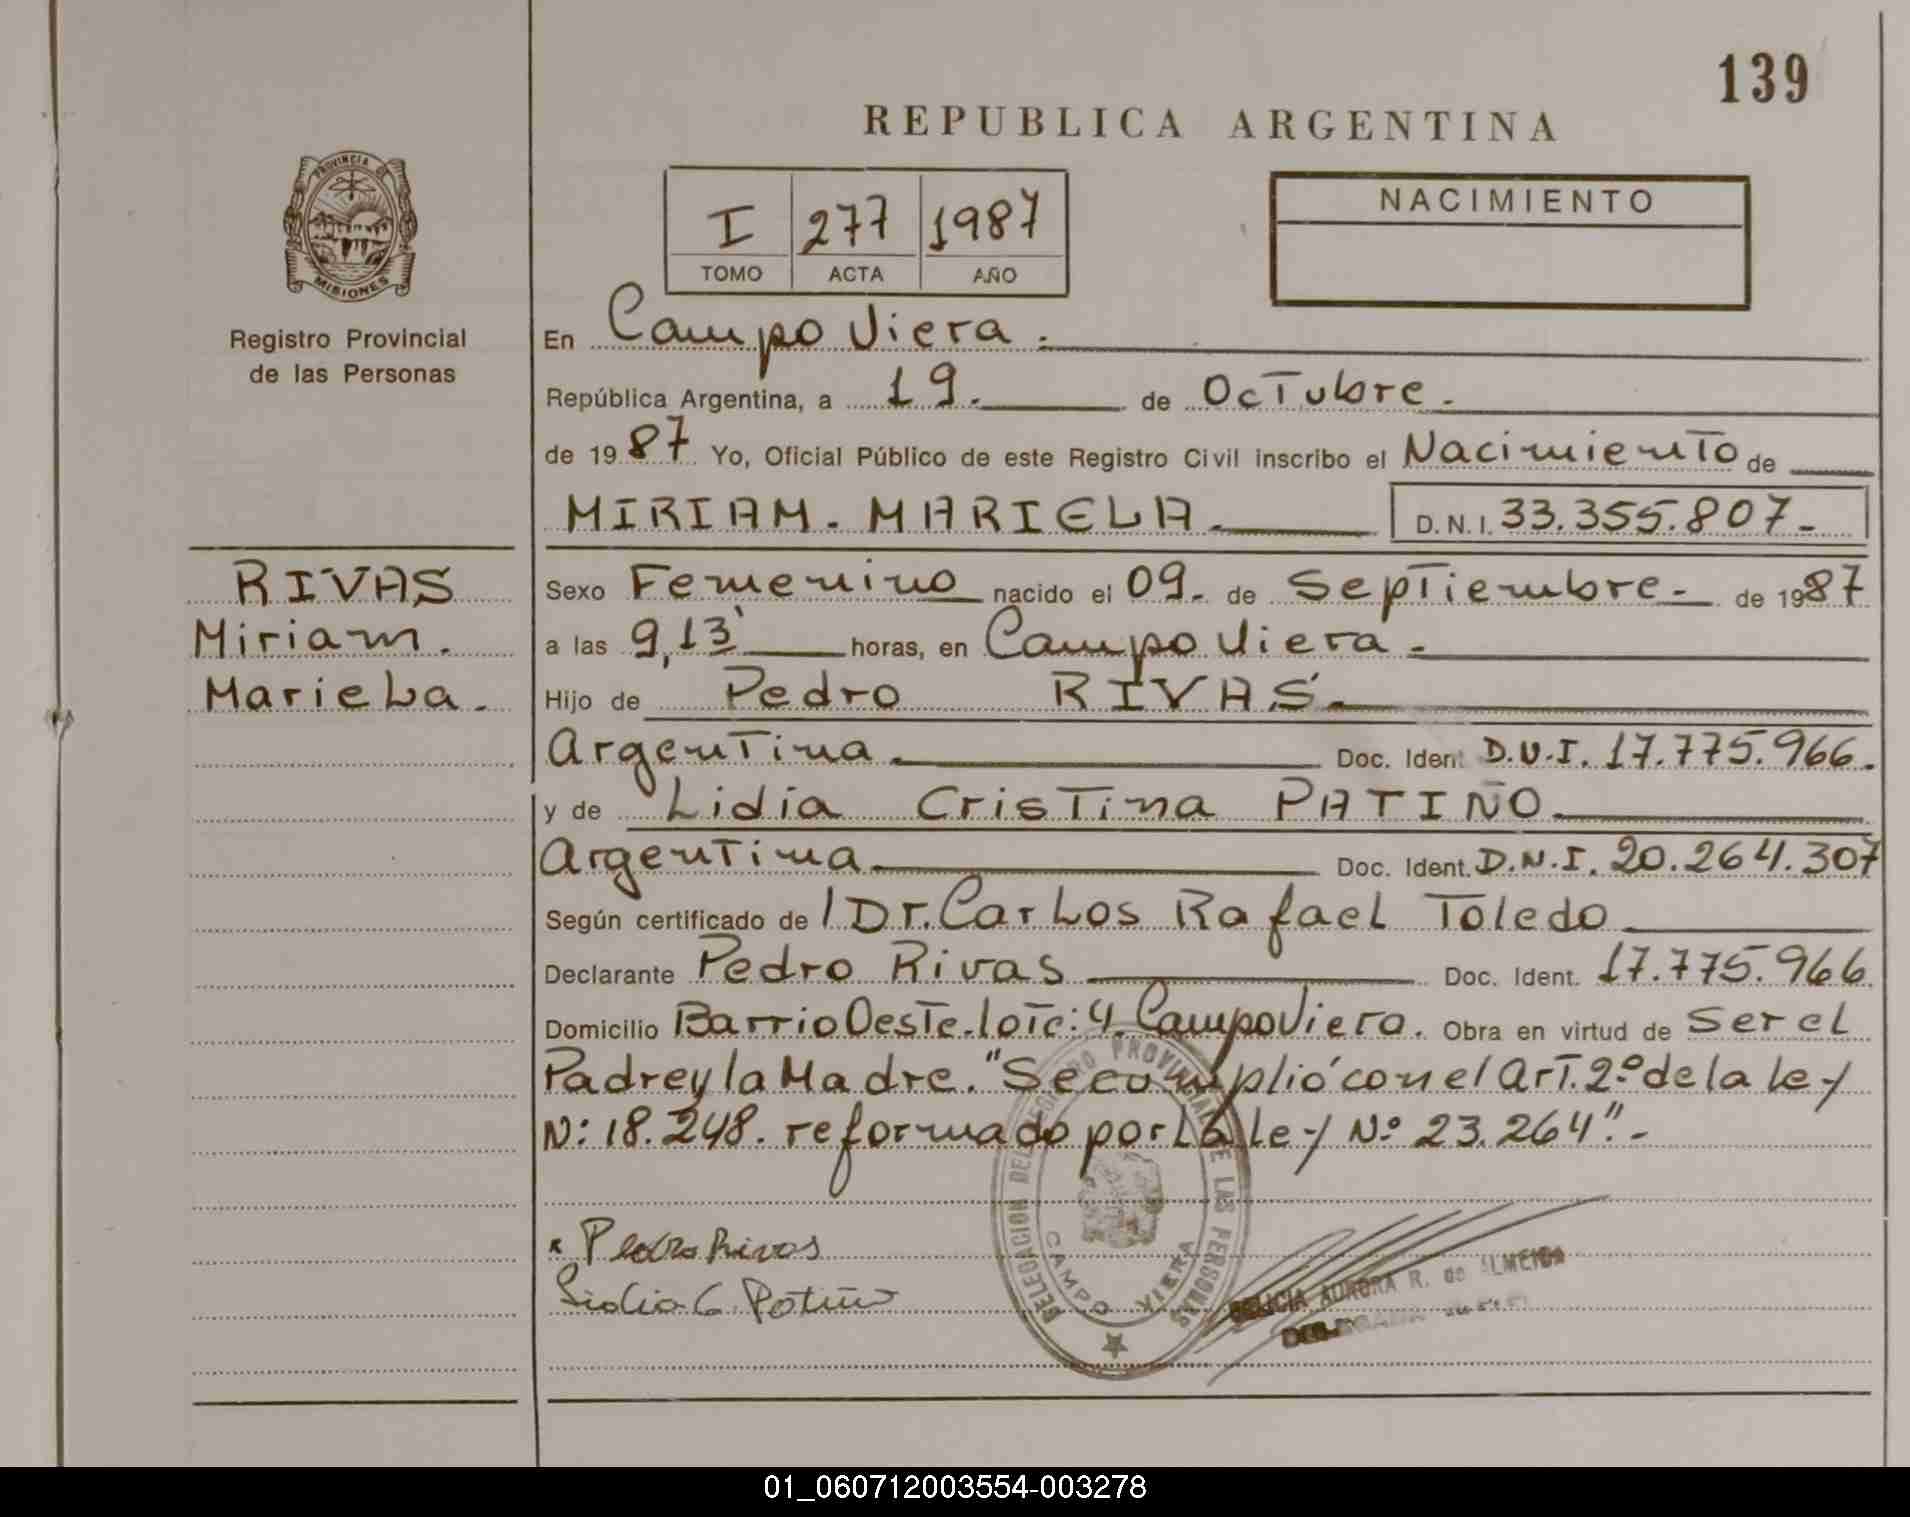 139
REPUBLICA ARGENTINA
PROVINCIA DE
MISIONES
Registro Provincial
de las Personas
I 277 1987
TOMO ACTA AÑO
NACIMIENTO
En Campo Viera.
República Argentina, a 19. de Octubre.
de 1987 Yo, Oficial Público de este Registro Civil inscribo el Nacimiento de
MIRIAM. MARIELA. D.N.I. 33.355.807-
RIVAS
Miriam.
Mariela.
Sexo Femenino nacido el 09. de Septiembre. de 1987
a las 9,13' horas, en Campo Viera.
Hijo de Pedro RIVAS.
Argentina Doc. Ident. D.N.I. 17.775.966.
y de Lidia Cristina PATIÑO.
Argentina Doc. Ident. D.N.I. 20.264.307
Según certificado de / Dr. Carlos Rafael Toledo
Declarante Pedro Rivas Doc. Ident. 17.775.966
Domicilio Barrio Oeste. lote: 4. Campo Viera. Obra en virtud de Ser el
Padre y la Madre. "Se cumplió con el Art. 2º de la ley
Nº: 18.248. reformado por la ley Nº 23.264".-
Pedro Rivas
Lidia C Patiño
DELEGACION DEL REGISTRO PROVINCIAL DE LAS PERSONAS
CAMPO VIERA
AURORA R. de ALMEIDA
01_060712003554-003278